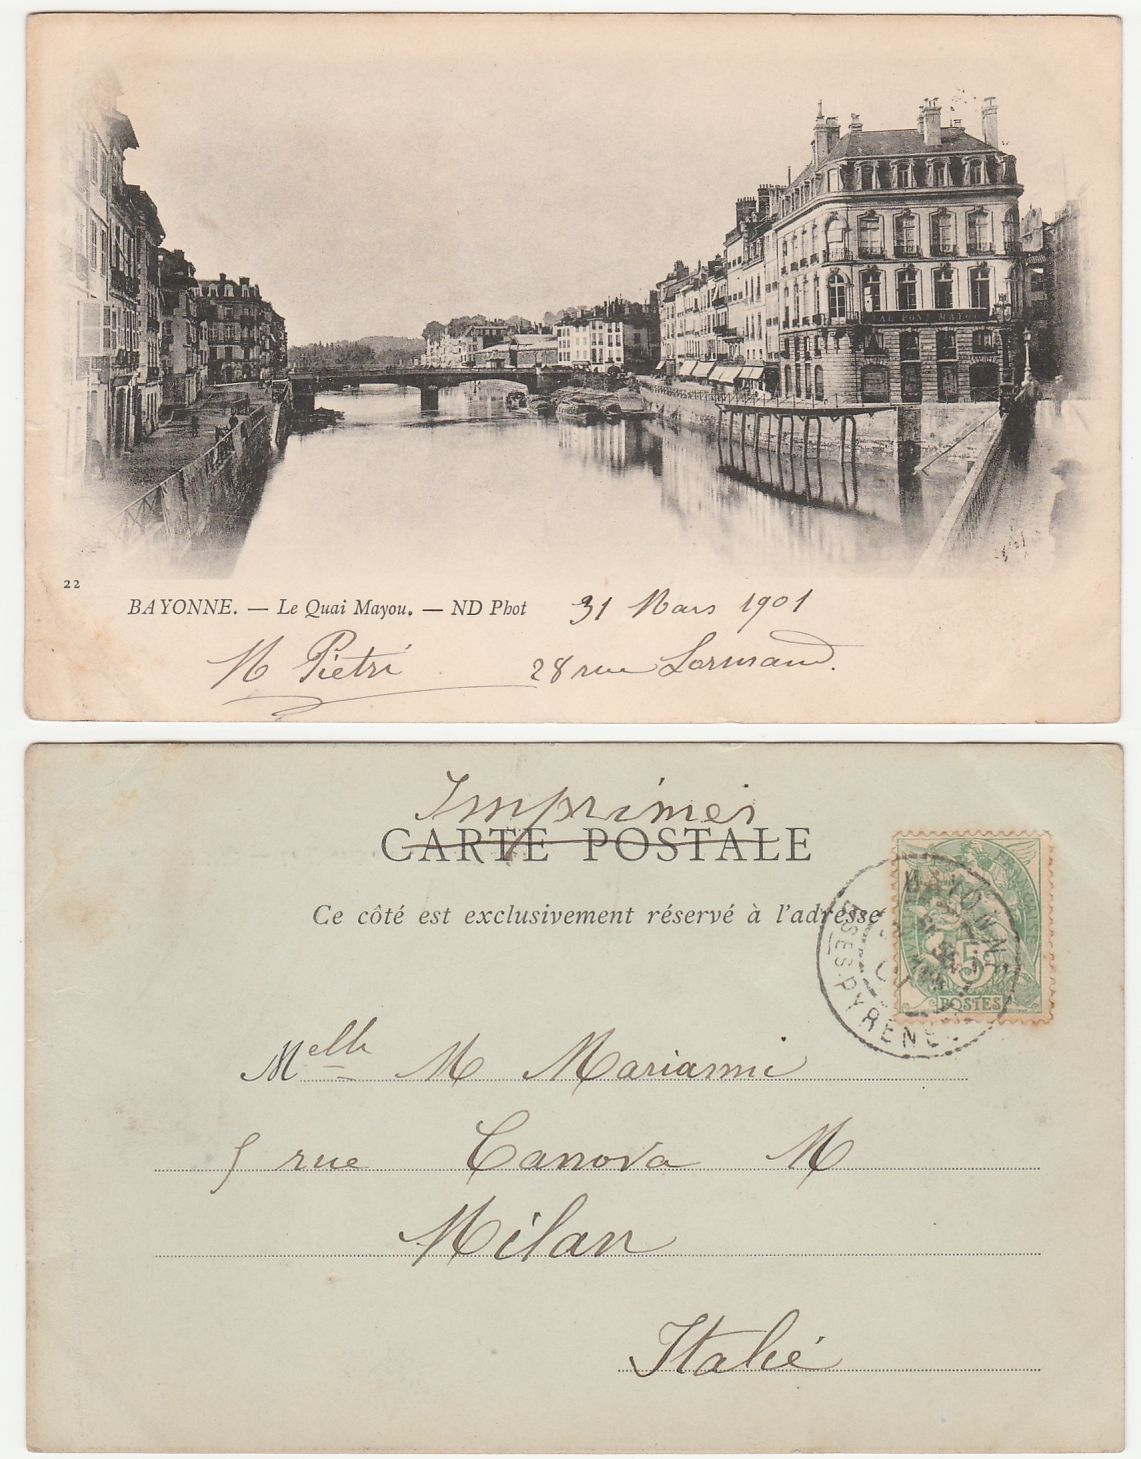 AU PONT MAYOU
22
BAYONNE. — Le Quai Mayou. — ND Phot
31 Mars 1901
M Pietri 28 rue Lormand.
Imprimés
CARTE POSTALE
Ce côté est exclusivement réservé à l'adresse
BAYONNE
BSES-PYRENEES
01
5
POSTES
Melle M Marianni
5 rue Canova M
Milan
Italie